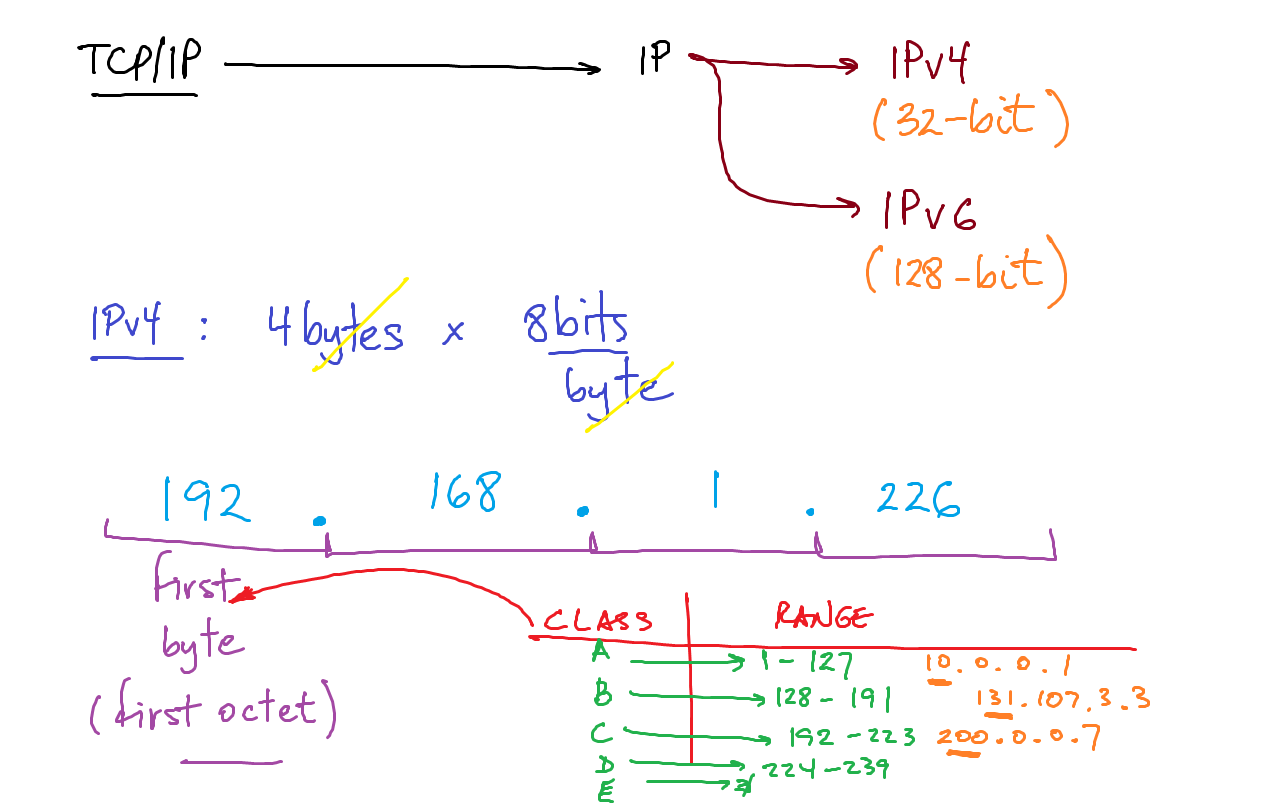 TCP/IP → IP → IPv4
(32-bit)
IPv6
(128-bit)
IPv4 : 4 bytes x 8 bits
byte
192 . 168 . 1 . 226
first
byte
(first octet)
CLASS RANGE
A → 1 - 127 10.0.0.1
B → 128 - 191 131.107.3.3
C → 192 - 223 200.0.0.7
D → 224 - 239
E →